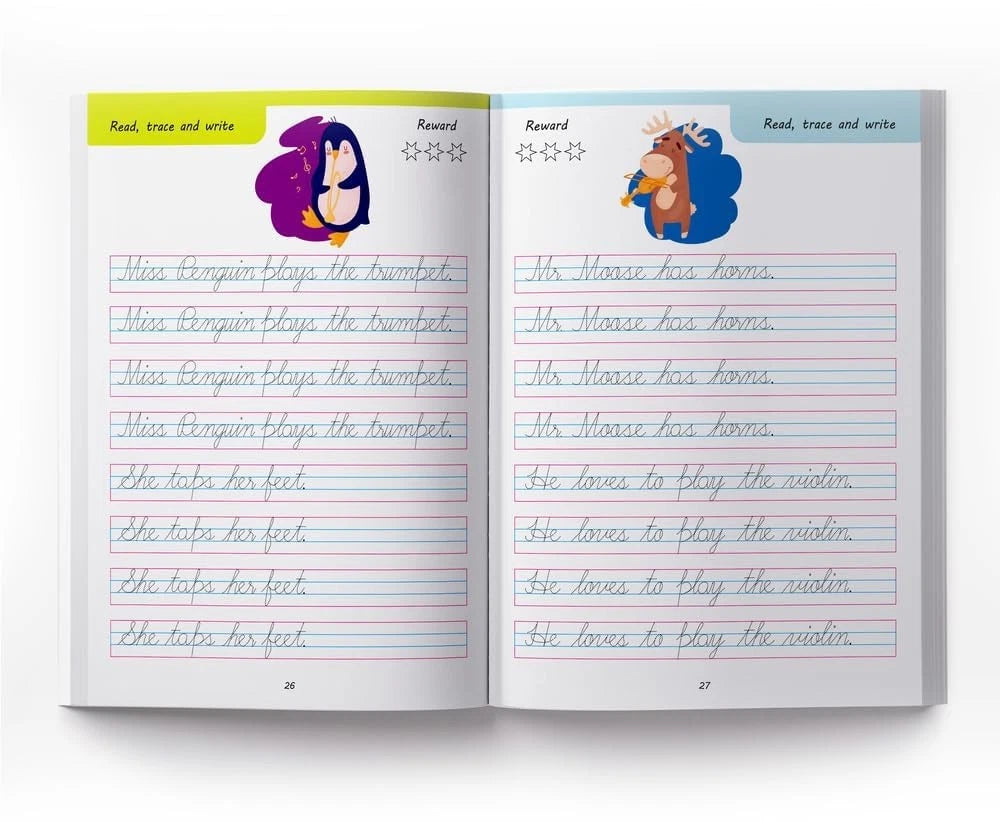 Read, trace and write
Reward
Miss Penguin plays the trumpet.
Miss Penguin plays the trumpet.
Miss Penguin plays the trumpet.
Miss Penguin plays the trumpet.
She taps her feet.
She taps her feet.
She taps her feet.
She taps her feet.
26
Reward
Read, trace and write
Mr Moose has horns.
Mr Moose has horns.
Mr Moose has horns.
Mr Moose has horns.
He loves to play the violin.
He loves to play the violin.
He loves to play the violin.
He loves to play the violin.
27